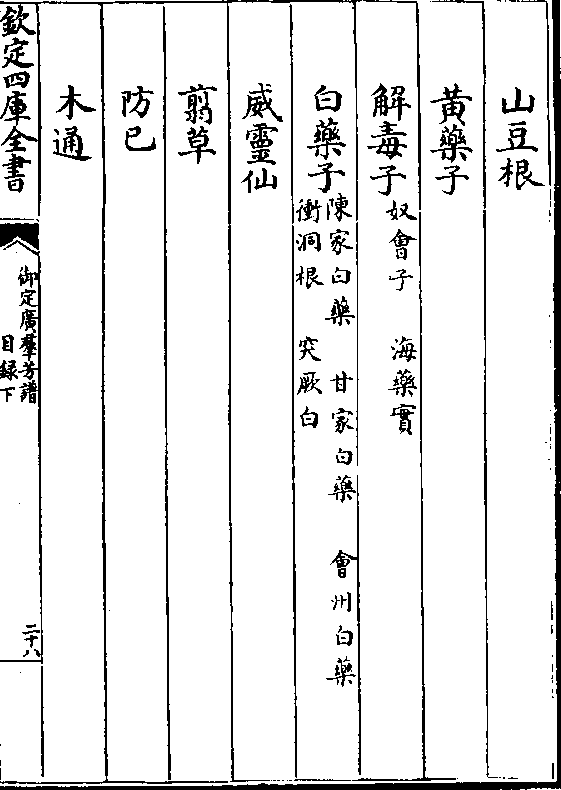 山豆根
黃藥子
解毒子 奴會子 海藥實
白藥子 陳家白藥 甘家白藥 會州白藥
衝洞根 突厥白
威靈仙
翦草
防已
木通
欽定四庫全書
御定廣羣芳譜
目録下
二十八